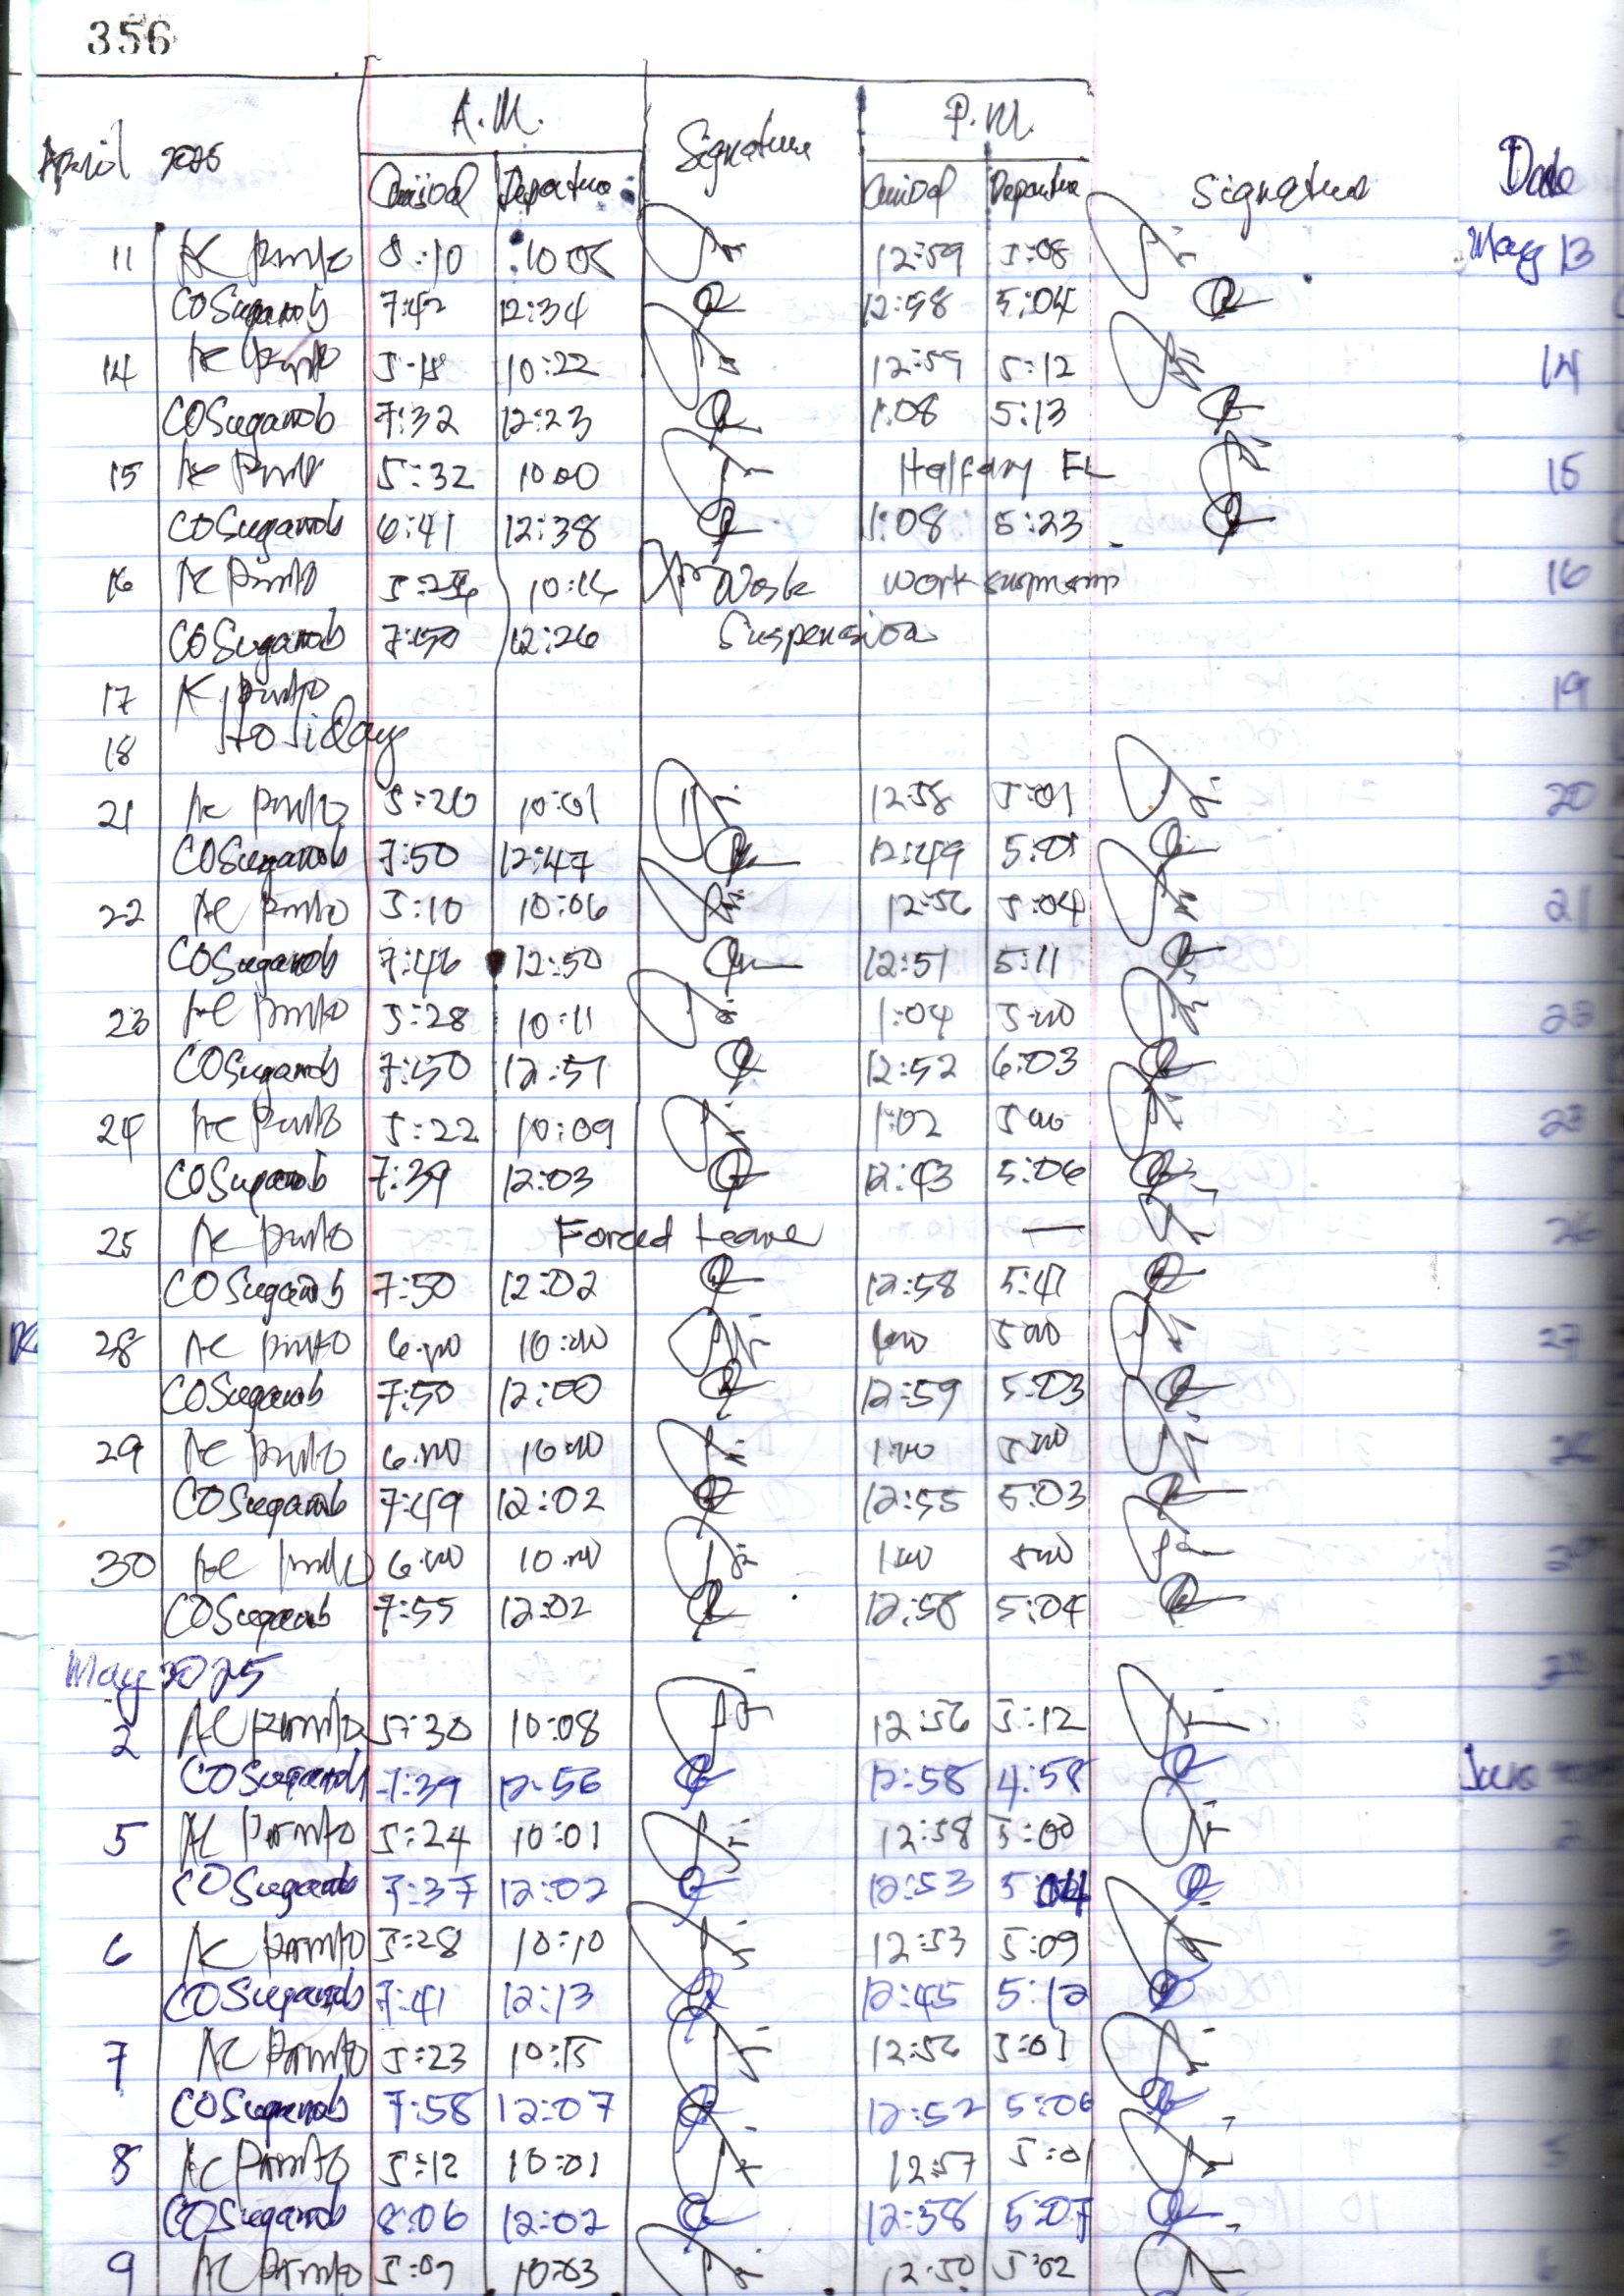 356
A.M. P.M.
April 2025 Signature Signature Date
Arrival Departure Arrival Departure
11 AC Pinto 8:10 10:05 12:59 5:08 May 13
COSuganob 7:42 12:34 12:58 5:04
14 AC Pinto 5:18 10:22 12:59 5:12 14
COSuganob 7:32 12:23 1:08 5:13
15 AC Pinto 5:32 10:00 Halfday FL 15
COSuganob 6:41 12:38 1:08 5:23
16 AC Pinto 10:14 Work work suspension 16
COSuganob 7:50 12:26 Suspension
17 AC Pinto 19
18 Holiday
21 AC Pinto 5:20 10:01 12:58 5:01 20
COSuganob 7:50 12:47 12:49 5:01
22 AC Pinto 5:10 10:06 12:56 5:04 21
COSuganob 7:46 12:50 12:51 5:11
23 AC Pinto 5:28 10:11 1:04 5:00
COSuganob 7:50 12:51 12:52 6:03
24 AC Pinto 5:22 10:09 1:02 5:00 23
COSuganob 7:39 12:03 12:43 5:06
25 AC Pinto Forced Leave — 26
COSuganob 7:50 12:02 12:58 5:41
28 AC Pinto 6:00 10:00 1:00 5:00 27
COSuganob 7:50 12:00 12:59 5:03
29 AC Pinto 6:00 10:00 1:00 5:00
COSuganob 7:49 12:02 12:55 5:03
30 AC Pinto 6:00 10:00 1:00 5:00
COSuganob 7:55 12:02 12:58 5:04
May 2025
2 AC Pinto 5:30 10:08 12:56 5:12
COSuganob 7:39 12:56 12:58 4:58 June
5 AC Pinto 5:24 10:01 12:58 5:00 2
COSuganob 7:37 12:02 12:53 5:04
6 AC Pinto 5:28 10:10 12:53 5:09 3
COSuganob 7:41 12:13 12:45 5:12
7 AC Pinto 5:23 10:15 12:56 5:01
COSuganob 7:58 12:07 12:52 5:06
8 AC Pinto 5:12 10:01 12:57 5:01 5
COSuganob 8:06 12:02 12:58 5:07
9 AC Pinto 5:07 10:03 12:50 5:02 6